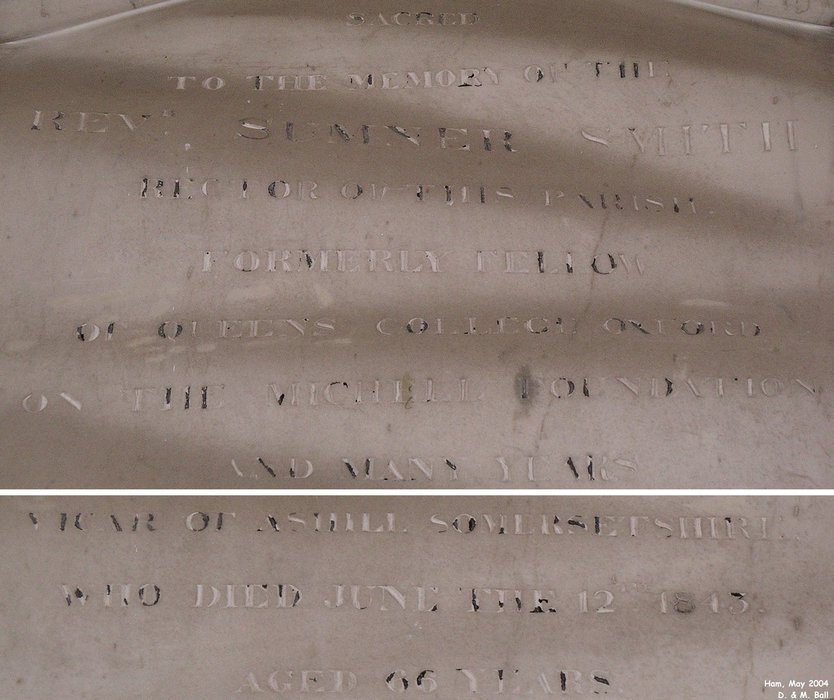 SACRED
TO THE MEMORY OF THE
REVD. SUMNER SMITH.
RECTOR OF THIS PARISH.
FORMERLY FELLOW
OF QUEENS COLLEGE OXFORD
ON THE MICHELL FOUNDATION
AND MANY YEARS
VICAR OF ASHILL SOMERSETSHIRE.
WHO DIED JUNE THE 12TH 1843.
AGED 66 YEARS
Ham, May 2004
D. & M. Ball